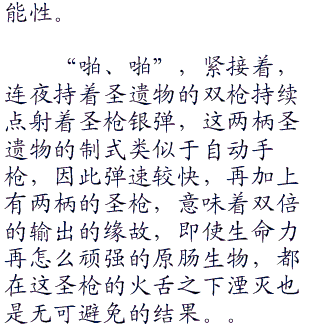 能性。
“啪、啪”，紧接着，
连夜持着圣遗物的双枪持续
点射着圣枪银弹，这两柄圣
遗物的制式类似于自动手
枪，因此弹速较快，再加上
有两柄的圣枪，意味着双倍
的输出的缘故，即使生命力
再怎么顽强的原肠生物，都
在这圣枪的火舌之下湮灭也
是无可避免的结果。。